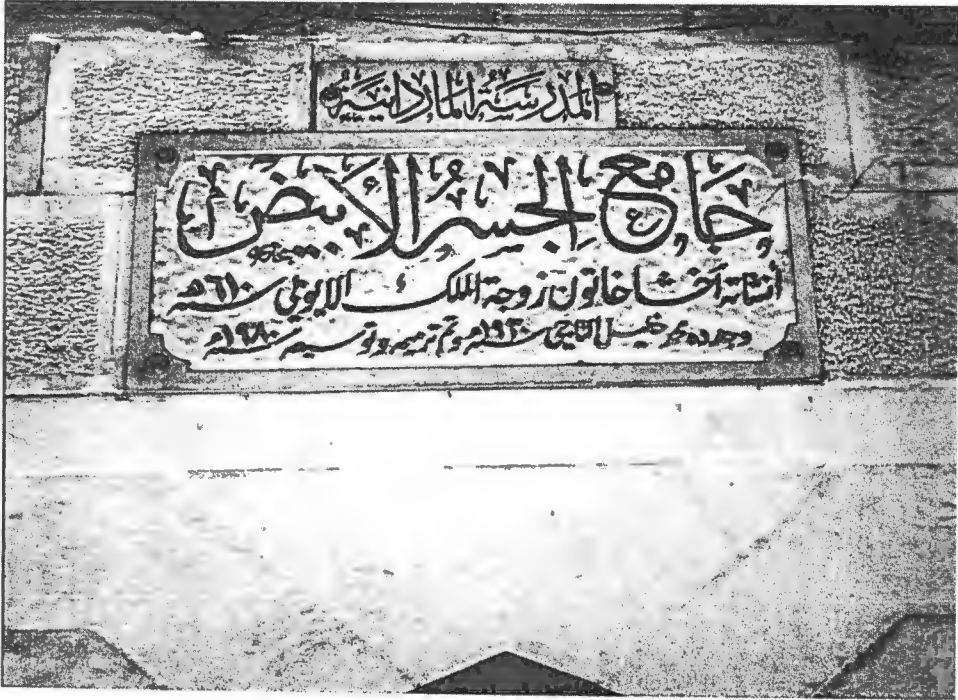 المدرسة الماردانية
جامع الجسر الأبيض
أنشأته أخشا خاتون زوجة الملك الايوبي سنة ٦١٠هـ
وجدده خليل سنة ١٩٢٠م وتم ترميمه وتوسيعه سنة ١٩٨٠م